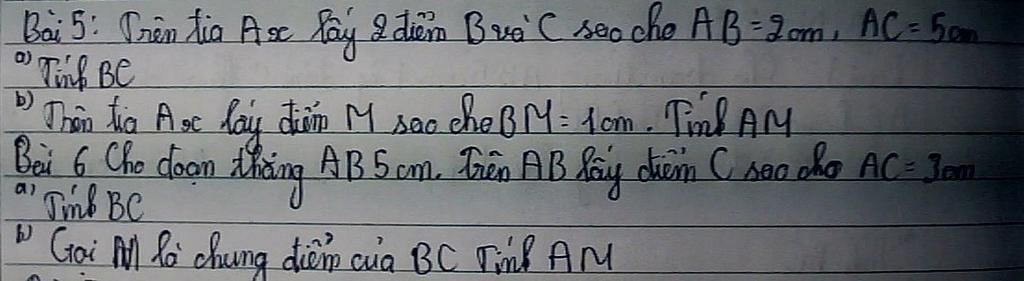 Bài 5: Trên tia Ax lấy 2 điểm B và C sao cho AB = 2cm, AC = 5cm
a) Tính BC
b) Trên tia Ax lấy điểm M sao cho BM = 1cm. Tính AM
Bài 6 Cho đoạn thẳng AB 5cm. Trên AB lấy điểm C sao cho AC = 3cm
a) Tính BC
b) Gọi M là chung điểm của BC Tính AM